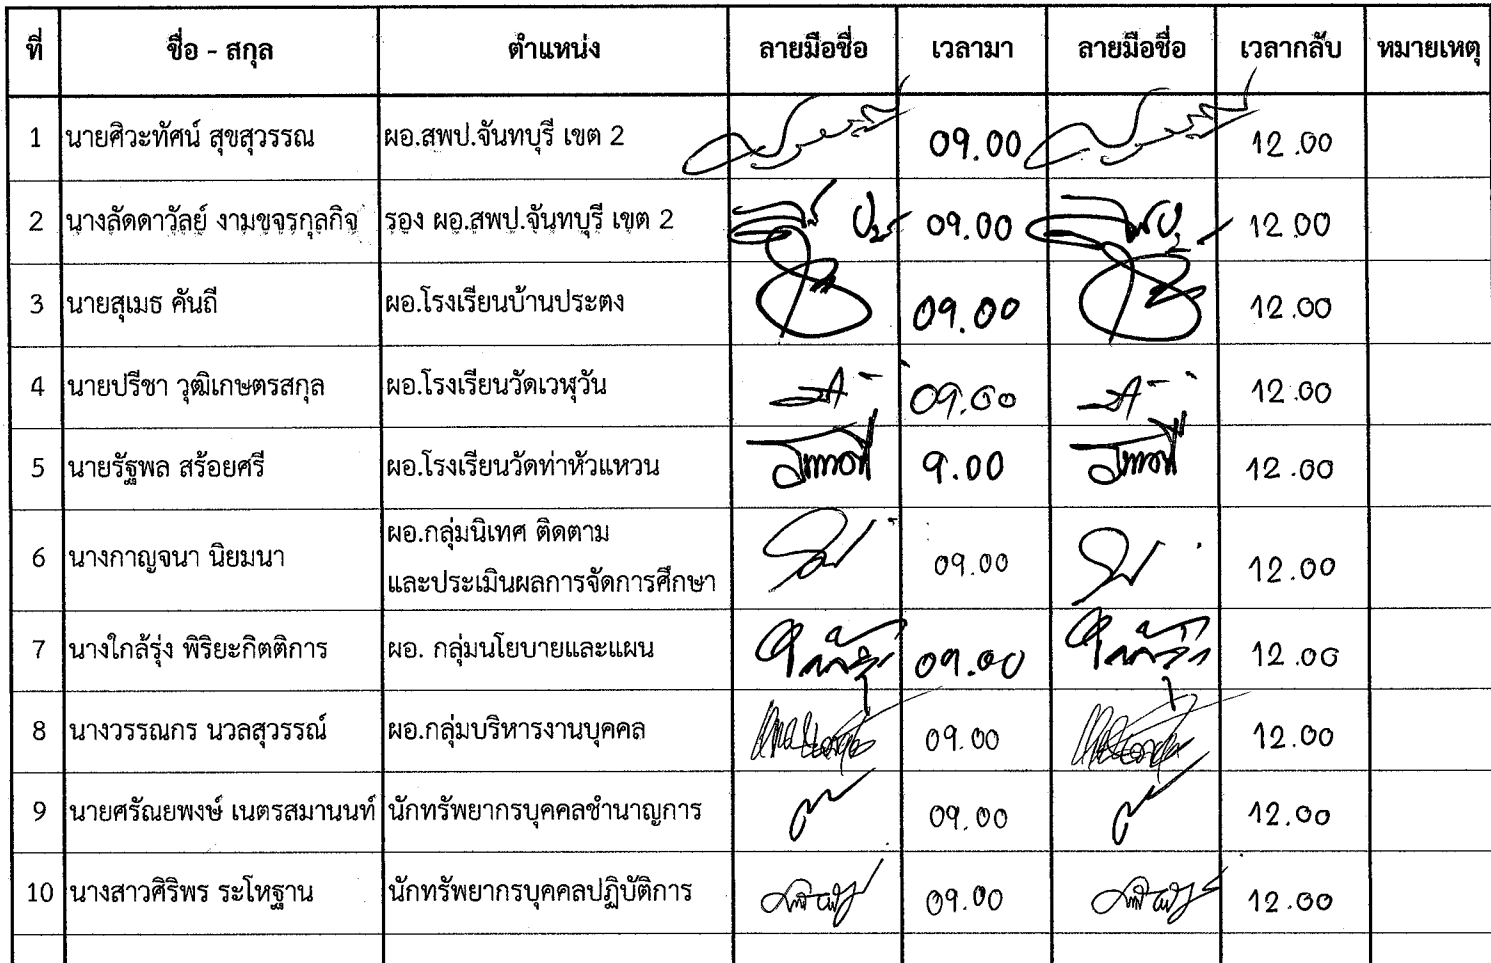 ที่ ชื่อ - สกุล ตำแหน่ง ลายมือชื่อ เวลามา ลายมือชื่อ เวลากลับ หมายเหตุ
1 นายศิวะทัศน์ สุขสุวรรณ ผอ.สพป.จันทบุรี เขต 2 09.00 12.00
2 นางลัดดาวัลย์ งามขจรกุลกิจ รอง ผอ.สพป.จันทบุรี เขต 2 09.00 12.00
3 นายสุเมธ คันถี ผอ.โรงเรียนบ้านประตง 09.00 12.00
4 นายปรีชา วุฒิเกษตรสกุล ผอ.โรงเรียนวัดเวฬุวัน 09.00 12.00
5 นายรัฐพล สร้อยศรี ผอ.โรงเรียนวัดท่าหัวแหวน 9.00 12.00
6 นางกาญจนา นิยมนา ผอ.กลุ่มนิเทศ ติดตาม 09.00 12.00
และประเมินผลการจัดการศึกษา
7 นางใกล้รุ่ง พิริยะกิตติการ ผอ. กลุ่มนโยบายและแผน 09.00 12.00
8 นางวรรณกร นวลสุวรรณ์ ผอ.กลุ่มบริหารงานบุคคล 09.00 12.00
9 นายศรัณยพงษ์ เนตรสมานนท์ นักทรัพยากรบุคคลชำนาญการ 09.00 12.00
10 นางสาวศิริพร ระโหฐาน นักทรัพยากรบุคคลปฏิบัติการ 09.00 12.00